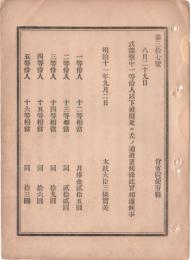 第三拾七號
八月二十九日
式部寮中一等伶人以下被廢更ニ左ノ通被置候條此旨相達候事
明治十一年九月二日
太政大臣三條實美
一等伶人 十二等相當 月俸金貳拾五圓
二等伶人 十三等相當 同 貳拾貳圓
三等伶人 十四等相當 同 拾九圓
四等伶人 十五等相當 同 拾六圓
五等伶人 十六等相當 同 拾三圓